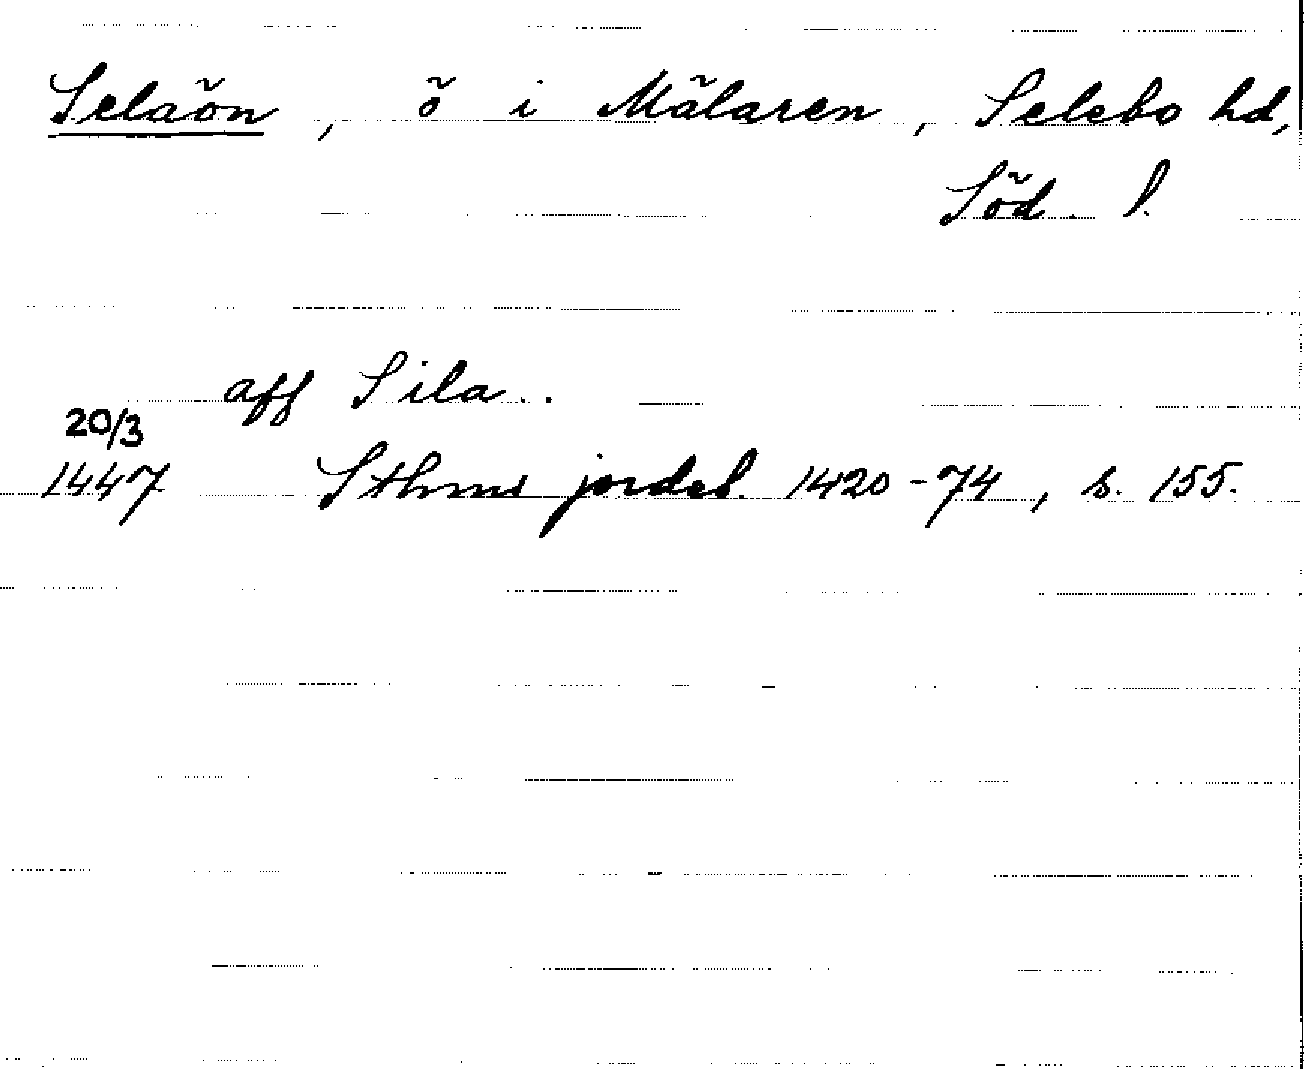 Selaön, ö i Mälaren, Selebo hd,
Söd. l.
aff Sila..
20/3
1447 Sthms jordeb. 1420-74, s. 155.